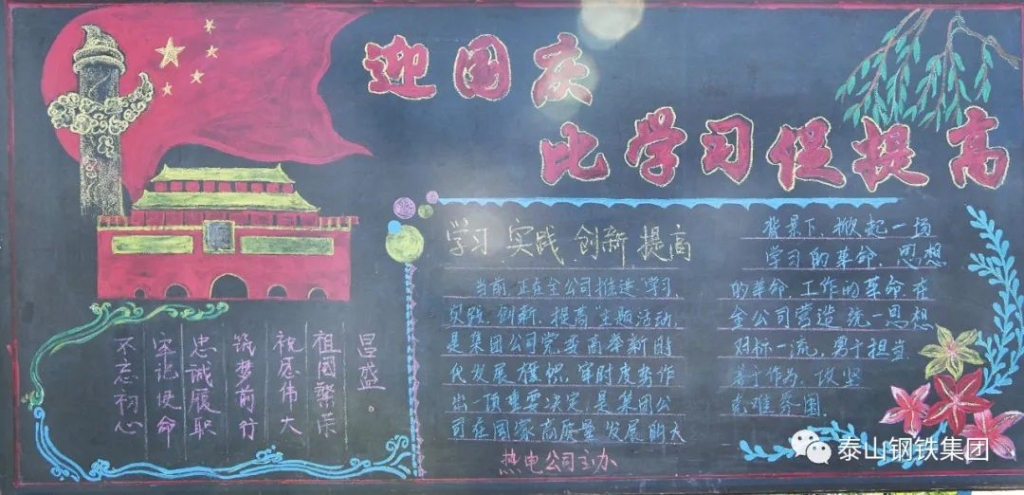 迎国庆
比学习促提高
学习 实践 创新 提高
当前,正在全公司推进"学习、
实践、创新、提高"主题活动,
是集团公司党委高举新时
代发展旗帜,审时度势作
出一项重要决定,是集团公
司在国家高质量发展的大
背景下,掀起一场
学习的革命、思想
的革命、工作的革命在
全公司营造统一思想
对标一流、勇于担当
善于作为、攻坚
克难氛围。
热电公司主办
昌盛。
祖国繁荣
祝愿伟大
筑梦前行
忠诚履职
牢记使命
不忘初心
泰山钢铁集团